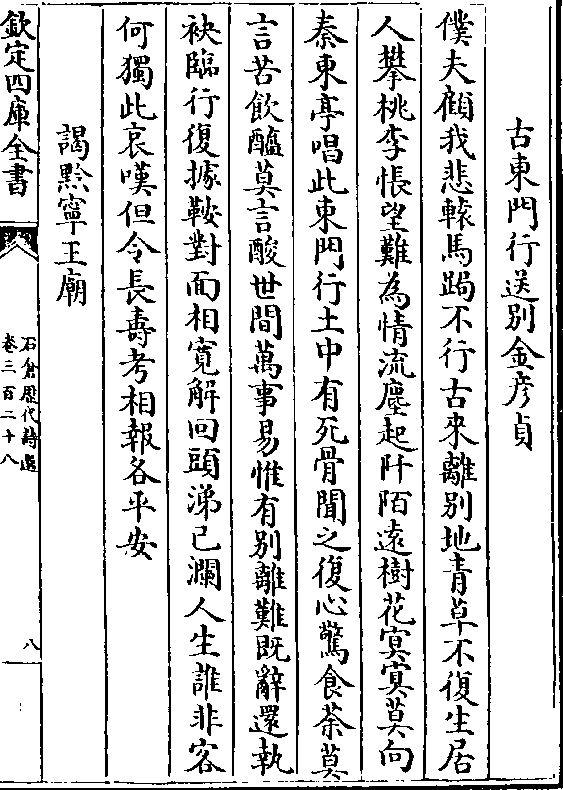 古東門行送别金彦貞
僕夫顧我悲轅馬跼不行古來離别地青草不復生居
人攀桃李悵望難為情流塵起阡陌遠樹花冥冥莫向
秦東亭唱此東門行土中有死骨聞之復心驚食荼莫
言苦飲醯莫言酸世間萬事易惟有别離難既辭還執
袂臨行復據鞍對面相寛解回頭涕已瀾人生誰非客
何獨此哀嘆但令長夀考相報各平安
謁黔寧王廟
欽定四庫全書
石倉歴代詩選
卷三百二十八
八